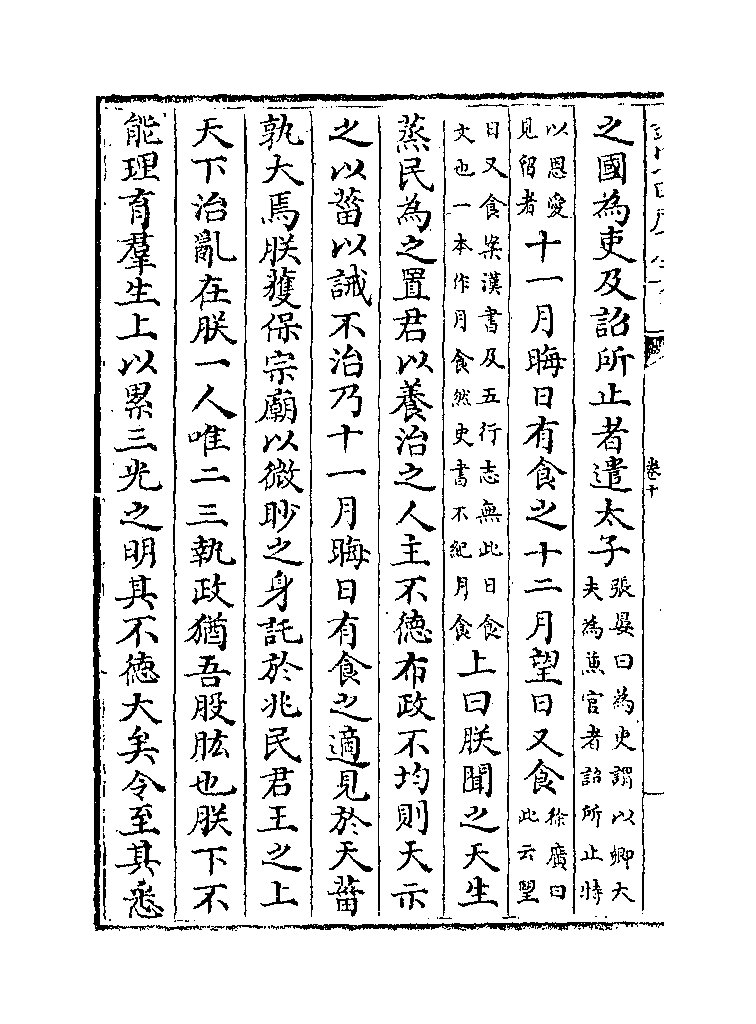 卷十
之國為吏及詔所止者遣太子張晏曰為吏謂以卿大
夫為蕉官者詔所止特
以恩愛
見留者十一月晦日有食之十二月望日又食徐廣曰
此云望
日又食案漢書及五行志無此日食
文也一本作月食然史書不紀月食上曰朕聞之天生
蒸民為之置君以養治之人主不德布政不均則天示
之以菑以誡不治乃十一月晦日有食之適見於天菑
孰大焉朕獲保宗廟以微眇之身託於兆民君王之上
天下治亂在朕一人唯二三執政猶吾股肱也朕下不
能理育羣生上以累三光之明其不德大矣令至其悉